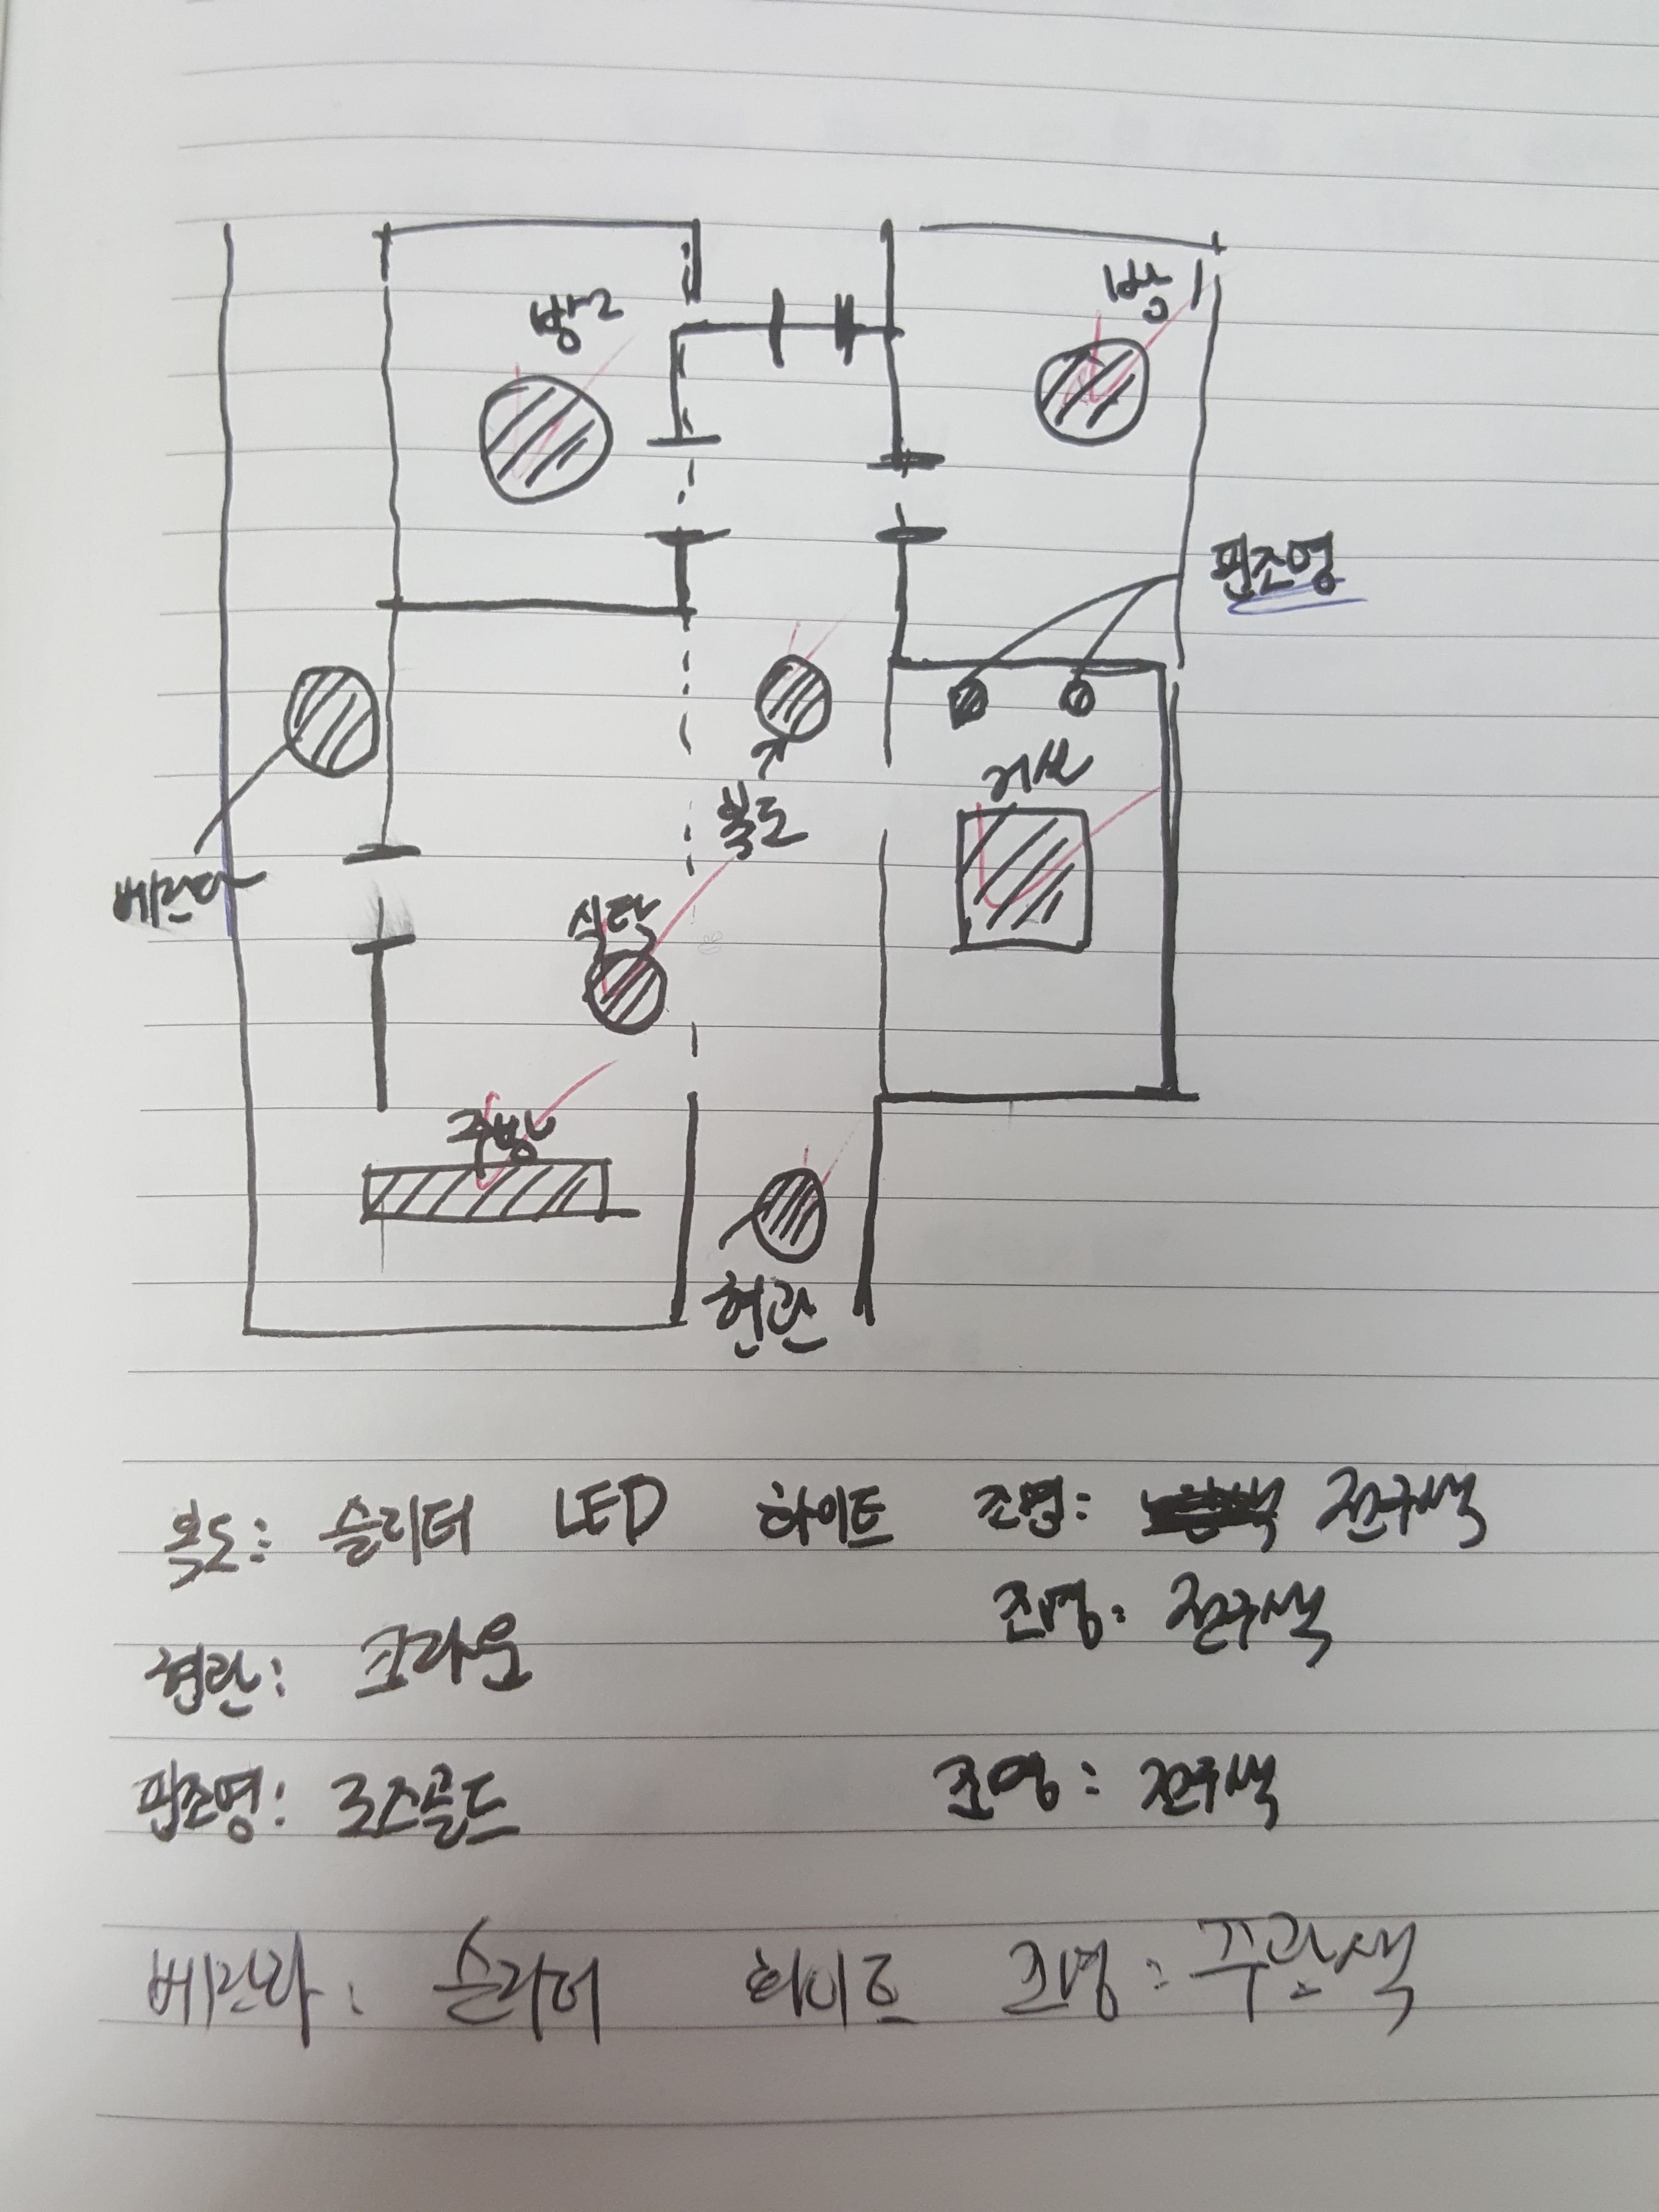 방2
방1
핀조명
거실
복도
베란다
식탁
주방
현관
복도: 슬리터 LED 화이트 조명: 전구색
현관: 크라운 조명: 전구색
핀조명: 로즈골드 조명: 전구색
베란다: 슬리터 화이트 조명: 주광색